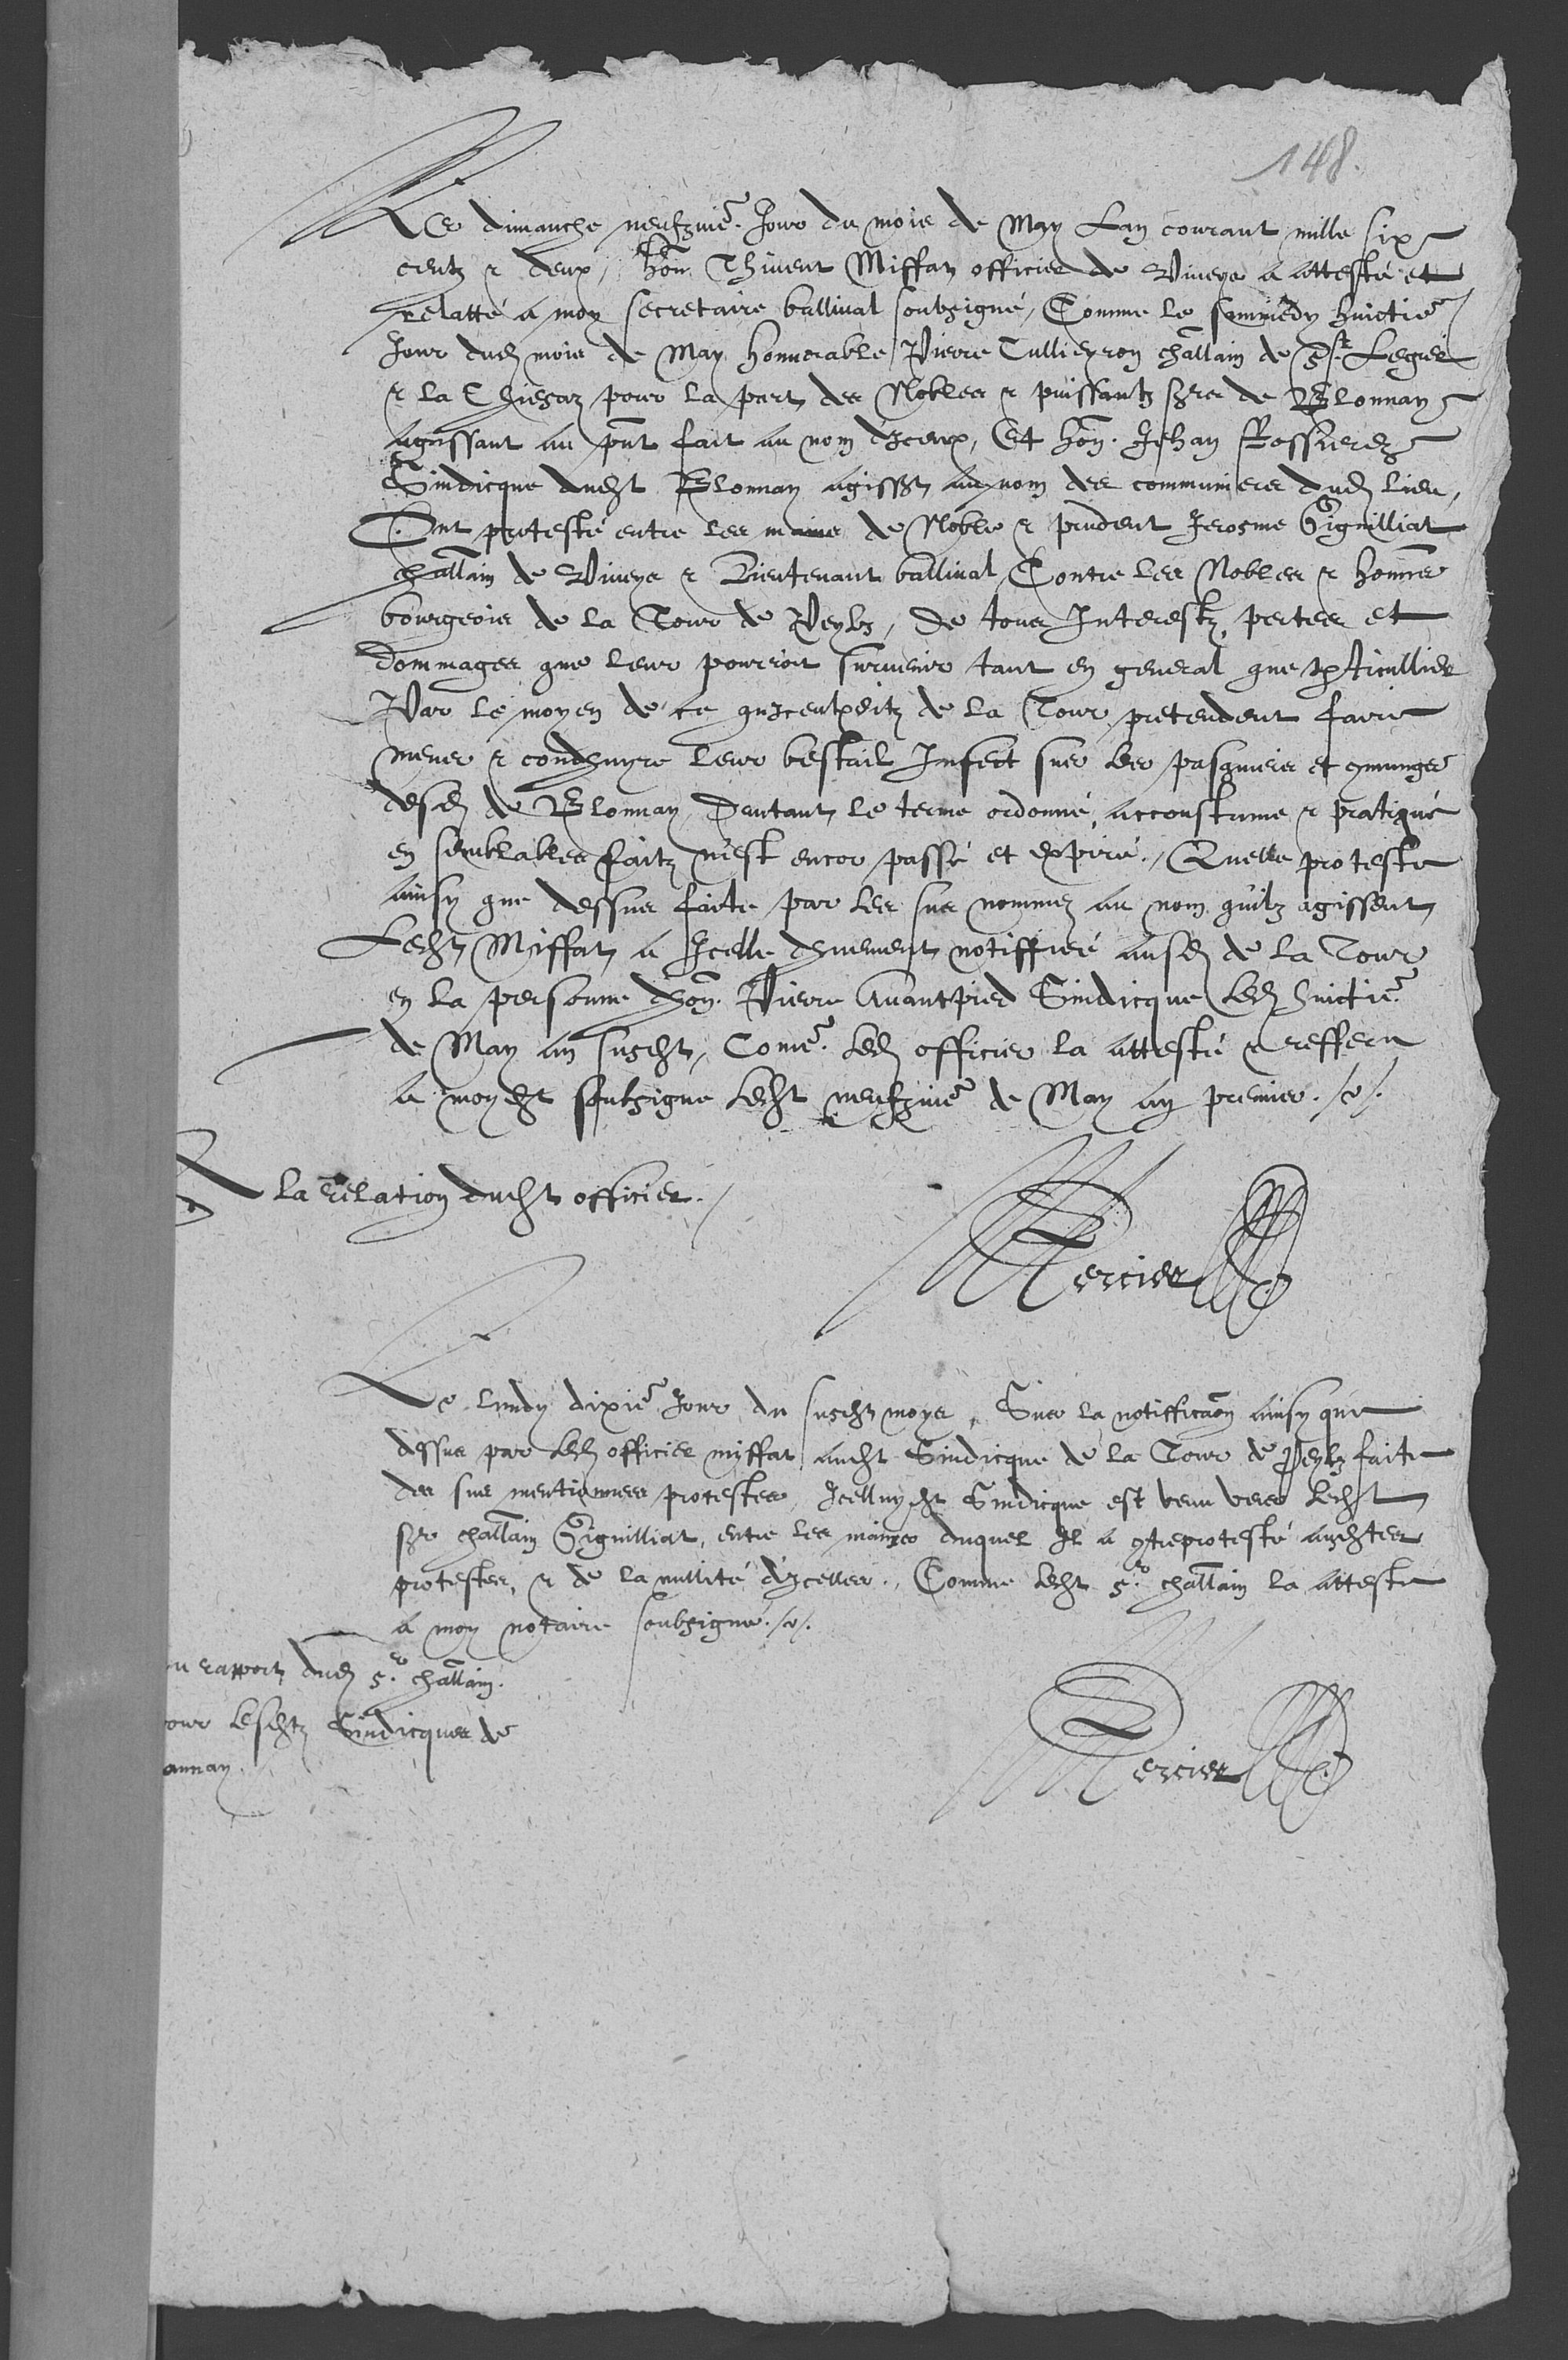 148.
Le dimanche neufzime. Jour du mois de May Lan courant mille six
centz & deux, hon. Thivent Miffat officier de Viveys a attesté et
relatté a moy secretaire ballival soubsigné, Comme le sammedy huictie
Jour dud mois de May honnorable Pierre Cullieyron challain de St. Legier
& la Chiesaz pour la part des Nobles & puissantz sgrs de Blonnay
agissant au pnt fait au nom diceux, Et hon. Jehan Bossierdz
Sindicque dudt Blonnay agisst au nom des communiers dud lieu,
Ont protesté entre les mains de Noble & prudent Jerosme Gignilliat
challain de Viveys & Lieutenant ballival, Contre les Nobles & honn
bourgeois de la Tour de Peylz, de tous Interestz, pertes et
dommages que leur pourroit survenir tant en general que pticullier
Par le moyen de ce qu'iceulxditz de la Tour pretendent faire
mener & condhuyre leur bestail Infect sus les pasquiers et comunges
desd de Blonnay, Deutant le terme ordonné, accoustume & pratiqué
en semblables faitz n'est encor passé et expiré., Quelle proteste
ainsy que dessus faite par les sus nommez au nom quilz agissent,
Ledt Miffat, a Icelle dhuement notiffieé ausd de la Tour
en la personne dhon. Pierre Avantpied Sindicque Led huictie
de May an susdt, Come. led officier la attesté & refferu
a moy dt soubsigne ledt neufzime de May an premier. /.
A la relation dudt officier./
Mercier
Le lundy dixie Jour du susdt moys, Sus la notifficaon ainsy que
dessus par led officier miffat audt Sindicque de la Tour de Peylz faite
des sus mentionnees protestes, Icelluy dt Sindicque est venu vers ledt
sgr challain Gignilliat, entre les mains duquel Il a contreprotesté ausdites
protestes, & de la nullité d'ycelles., Comme ledt sr. challain la atteste
a moy notaire soubsigné. /.
u rapport dud sr. challain.
our lesdtz Sindicques de
onnay.
Mercier